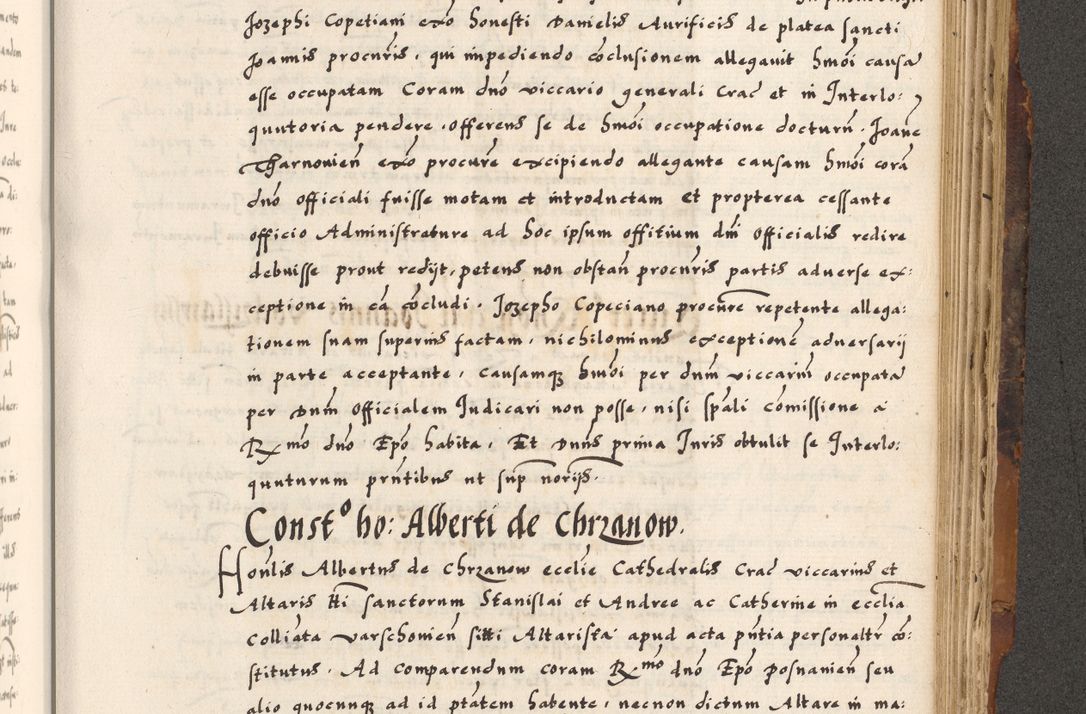 Jozephi Copetiani exõ honesti Danielis Aurificis de platea sancti
Joannis procuris, qui impediendo cõclusionem allegauit hmõi causã
esse occupatam Coram dnõ viccario generali Crac̃ et in Interlo:
quutoria pendere, offerens se de hmõi occupatione docturũ. Joane
Tharnouieñ exõ procure excipiendo allegante causam hmõi corã
dnõ officiali fuisse motam et introductam Et propterea cessante
officio Administrature ad hoc ipsum offitium dñi Officialis redire
debuisse prout redijt, petens non obstañ procuris partis aduerse ex:
ceptione in cã cõcludi. Jozepho Copeciano procure repetente allega:
tionem suam superius factam, nichilominus exceptionẽ aduersarij
in parte acceptante, Causamq hmõi per dnm̃ viccariũ occupatã
per Dnm̃ Officialem Judicari non posse, nisi spãli cõmissione a
Rmo dnõ Epõ habita, Et Dnũs prima Juris obtulit se Interlo:
quuturum pñtibus ut sup̃ norijs.
Constᵒ ho: Alberti de Chrzanow.
Honlis Albertus de Chrzanow ecclie Cathedralis Crac̃ viccarius et
Altaris tti sanctorum Stanislai et Andree ac Catherine in ecclia
Colliata varschouieñ sitti Altarista apud acta pñtia personaltr cõ:
stitutus. Ad comparendum coram Rmo dnõ Epõ posnanieñ seu
alio quocunq ad id ptãtem habente, necnon dictum Altare in ma: